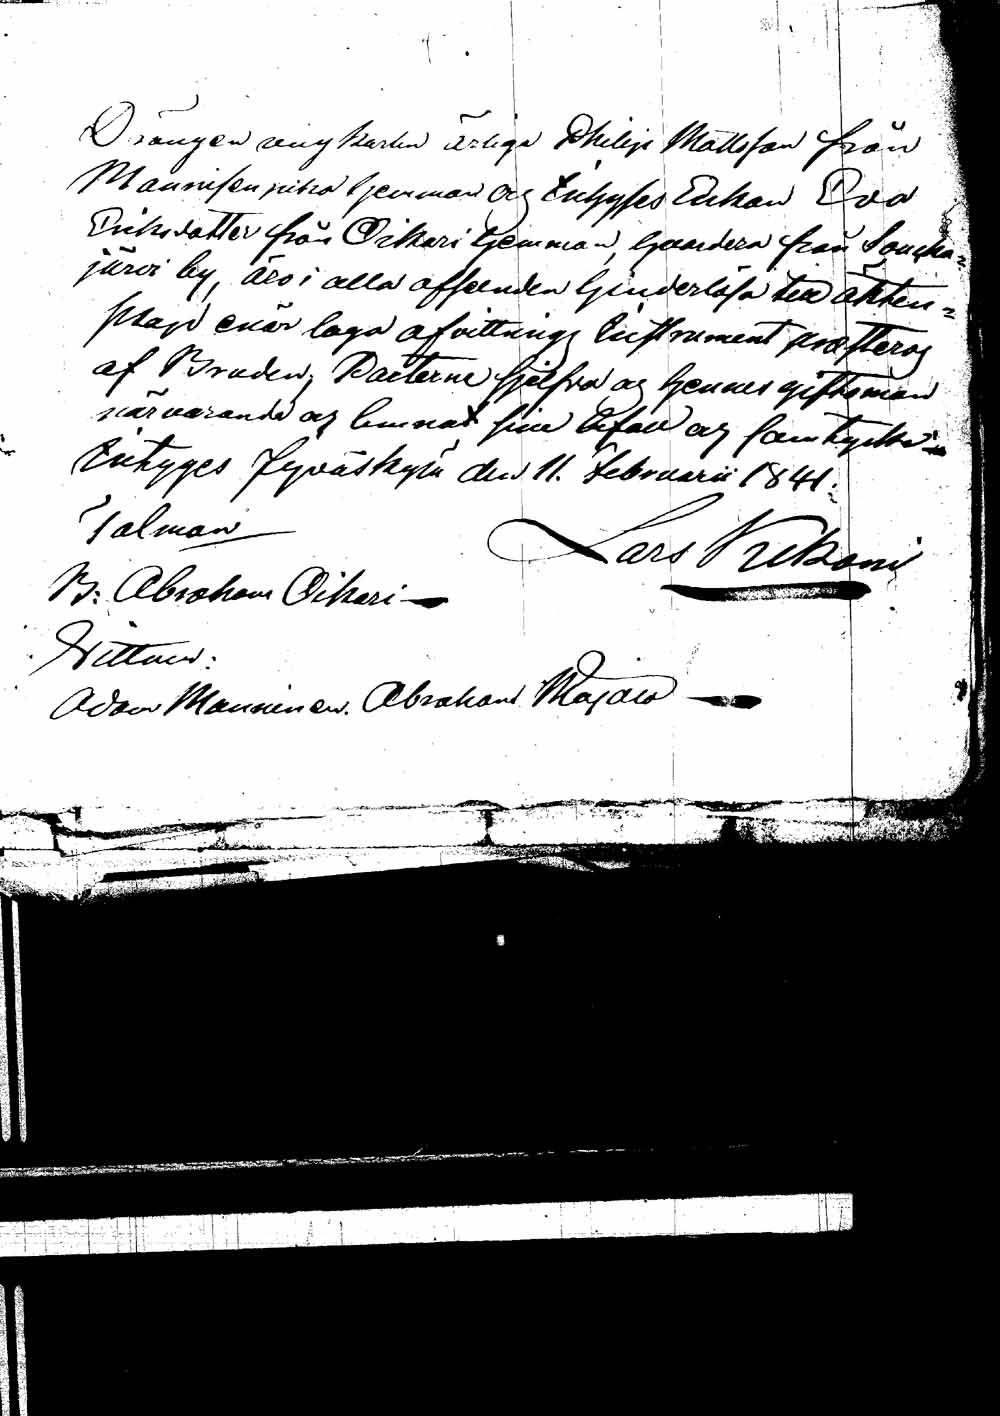 Drängen ungkarlen ärlige Philip Mattsson från
Mannisenmäki hemman og Inhyses Enkan Eva
Eriksdotter från Oikari hemman, hvardera från Louka=
järvi by, äro i alla afseenden hinderlösa till äkten=
skap enär laga afvittrings Instrument
af Bruden, Parterne sjelfva og hennes giftoman
närvarande og lemnat sina og samtycke.
Intyges Jyväskylä den 11. Februarii 1841.
Talman
Lars
B: Abraham Oikari
Vittnen:
Adam Manninen. Abraham Majala